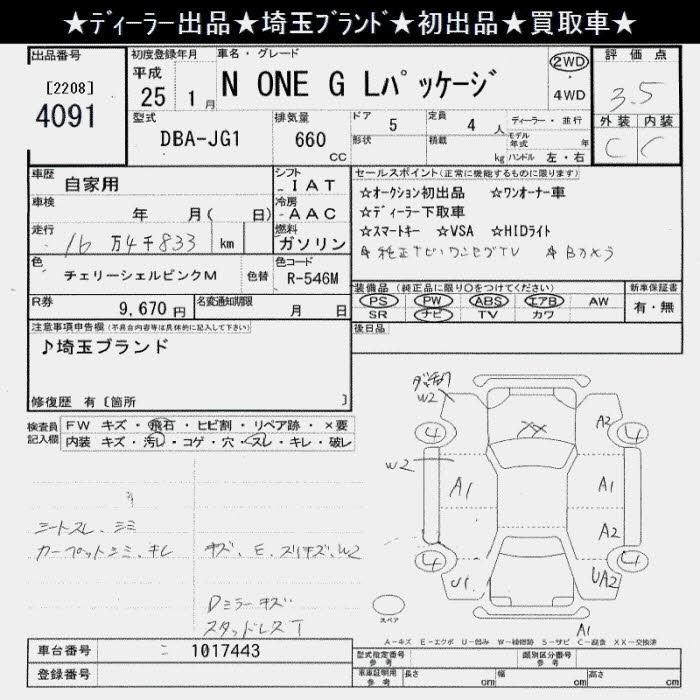 ★ディーラー出品★埼玉ブランド★初出品★買取車★
出品番号
[2208]
4091
初度登録年月
平成
25 1月
車名・グレード
N ONE G Lパッケージ
2WD
4WD
評価点
3.5
外装 内装
C C
型式
DBA-JG1
排気量
660
cc
ドア 5
形状
定員 4 人
積載 kg
ディーラー・並行
モデル
年式 年
ハンドル 左・右
車歴 自家用
シフト
IAT
車検 年 月( 日)
冷房
AAC
走行 16万4千833 km
燃料
ガソリン
色 チェリーシェルピンクM
色替
色コード
R-546M
R券 9,670円
名変通知期限 月 日
セールスポイント(正常に機能するものに限ります)
☆オークション初出品 ☆ワンオーナー車
☆ディーラー下取車
☆スマートキー ☆VSA ☆HIDライト
☆純正ナビ・ワンセグTV ☆Bカメラ
装備品 (純正品に限り○をつけてください)
PS PW ABS エアB AW
SR ナビ TV カワ
新車保証書
有・無
後日品
注意事項申告欄(不具合内容等は具体的に記入して下さい)
♪埼玉ブランド
修復歴 有〔箇所 〕
検査員
記入欄
FW キズ・飛石・ヒビ割・リペア跡・×要
内装 キズ・汚レ・コゲ・穴・スレ・キレ・破レ
シートスレ、シミ
カーペットシミ、キレ
キズ、E、スリキズ、W2
Dミラーキズ
スタッドレスT
W2
A2
4
4
XX
W2
A1
A1
A2
4
4
U1
UA2
A1
スペア
A-キズ E-エクボ U-凹み W-補修跡 S-サビ C-腐食 XX-交換済
車台番号 1017443
登録番号
型式指定番号
参考
類別区分番号
参考
車庫証明用
参考
長さ cm
幅 cm
高さ cm